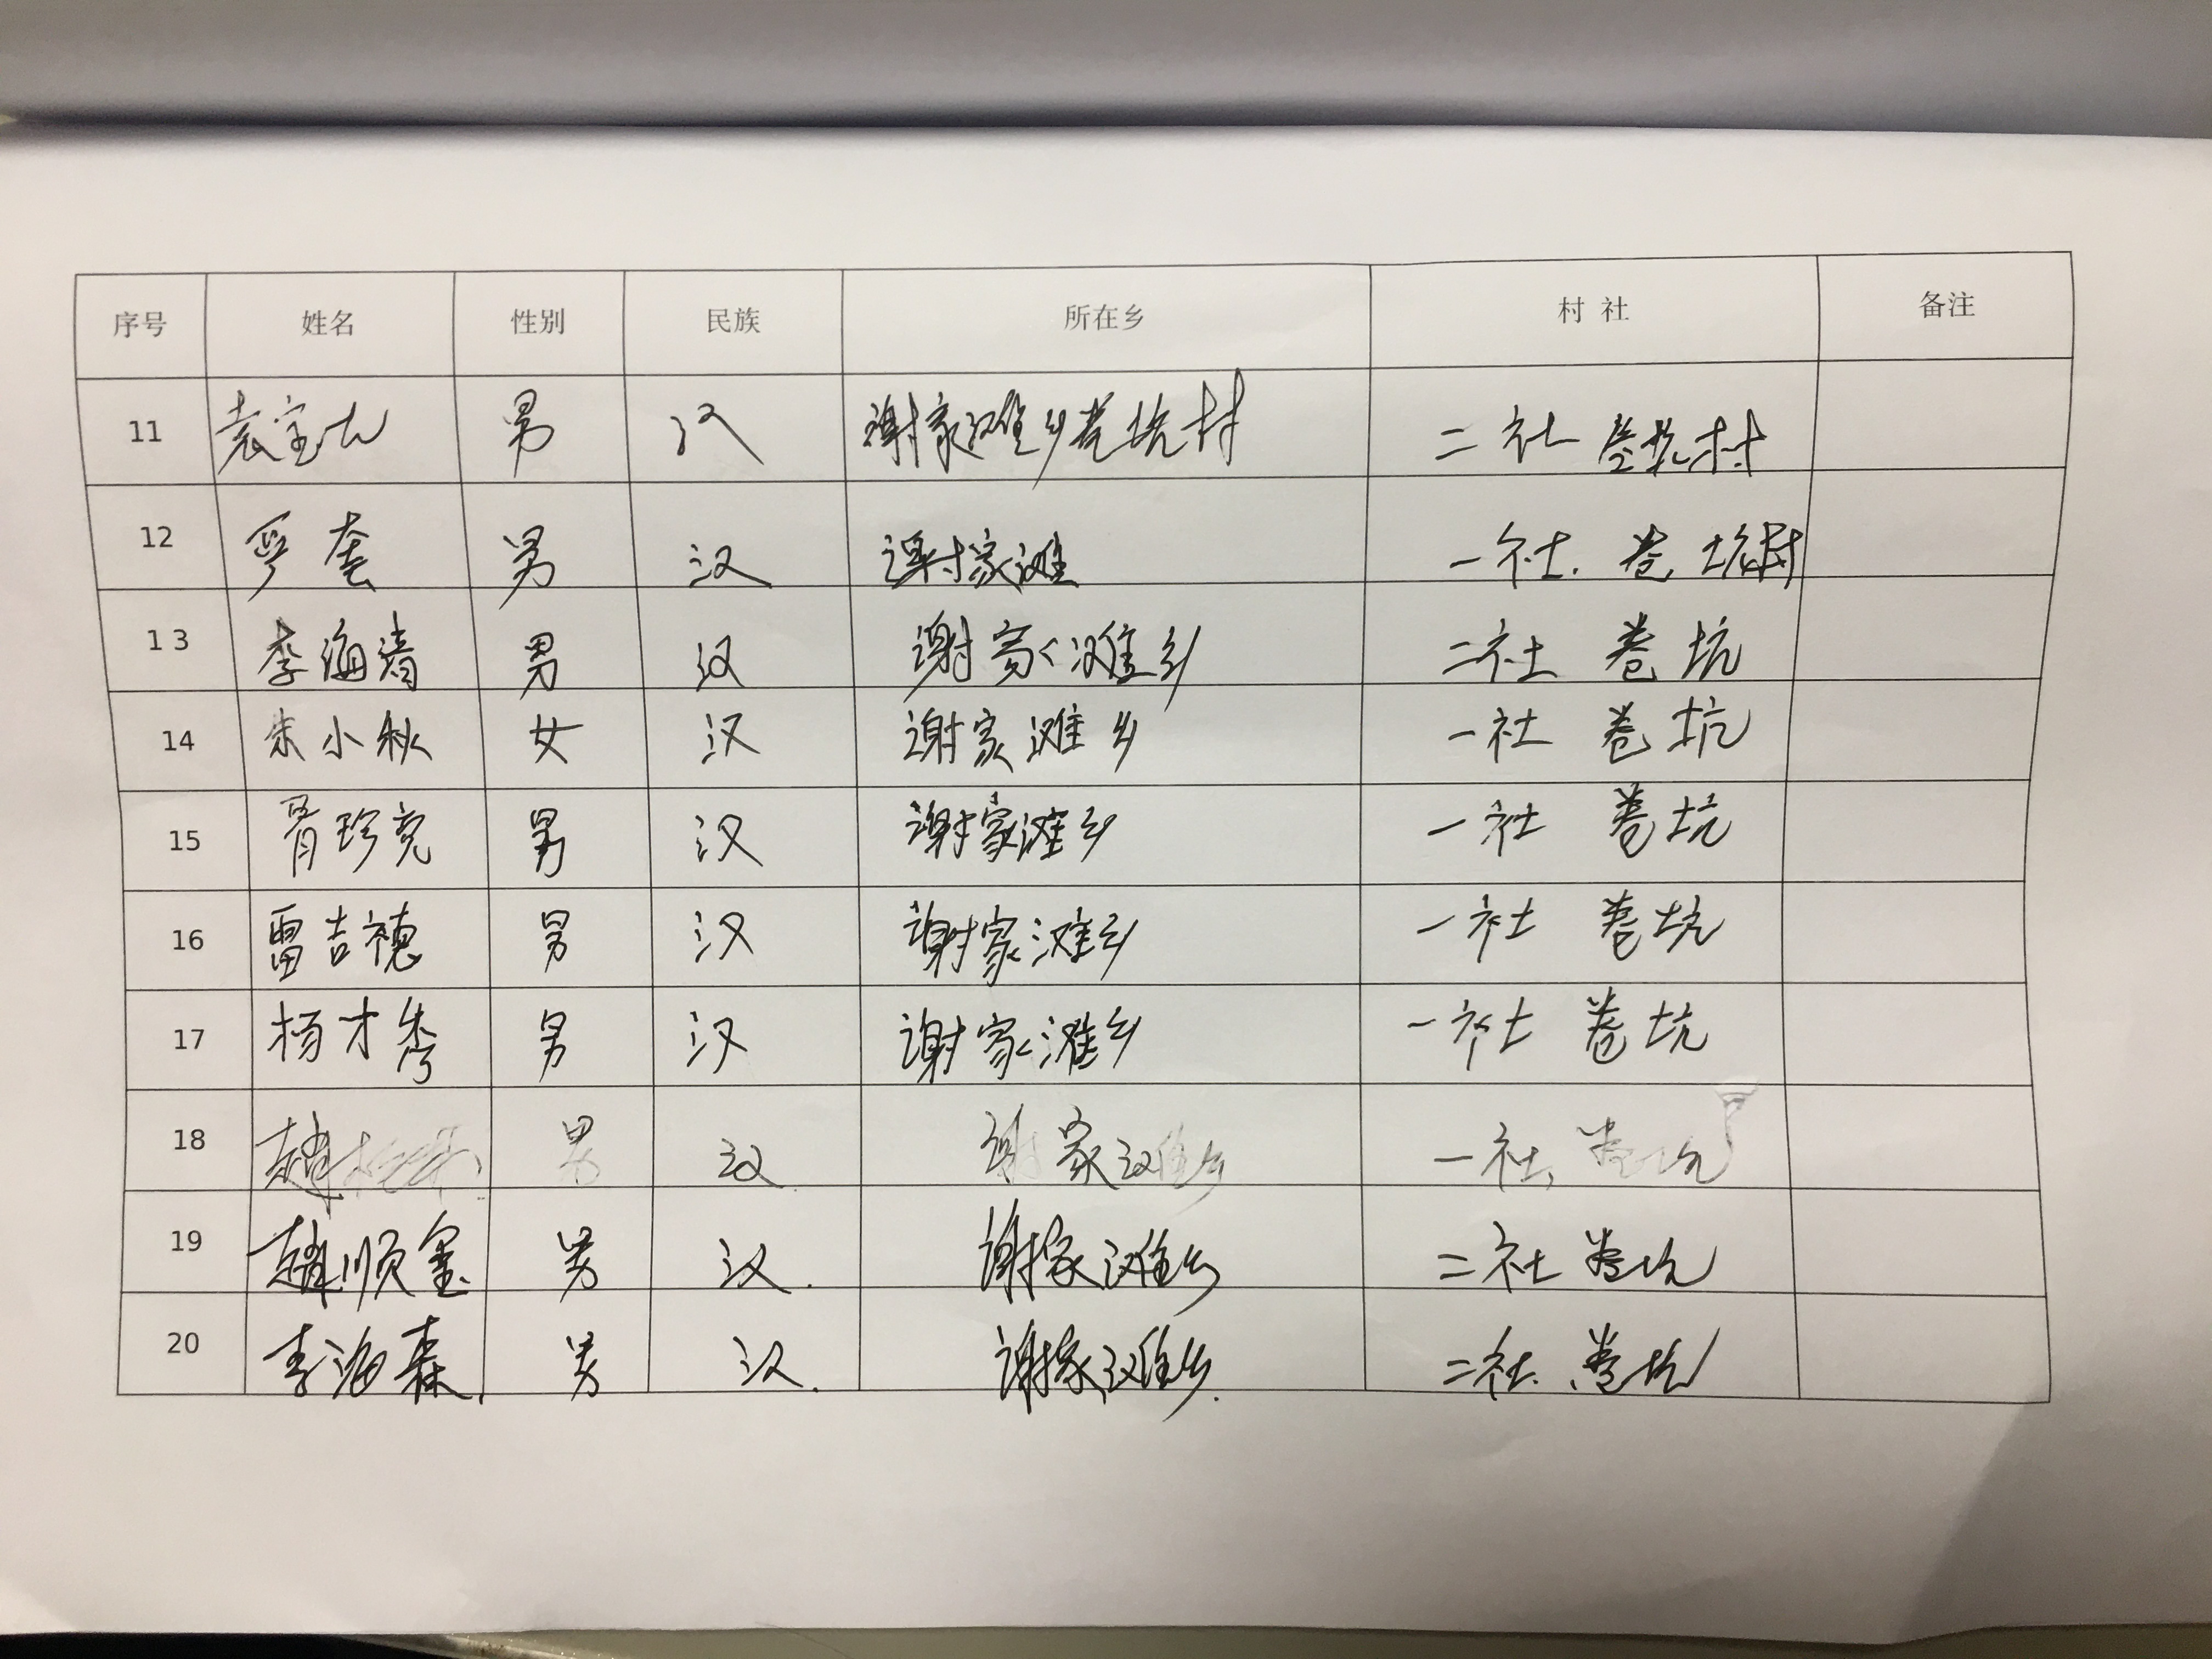 序号 姓名 性别 民族 所在乡 村 社 备注
11 袁宝 男 汉 谢家滩乡卷坑村 二社 卷坑村
12 罗奎 男 汉 谢家滩 一社. 卷坑村
13 李海清 男 汉 谢家滩乡 二社 卷坑
14 朱小秋 女 汉 谢家滩乡 一社 卷坑
15 胥珍亮 男 汉 谢家滩乡 一社 卷坑
16 雷吉穗 男 汉 谢家滩乡 一社 卷坑
17 杨才秀 男 汉 谢家滩乡 一社 卷坑
18 赵 男 汉. 谢家滩乡 一社. 卷坑
19 赵顺奎 男 汉. 谢家滩乡 二社 卷坑
20 李海森. 男 汉. 谢家滩乡. 二社. 卷坑